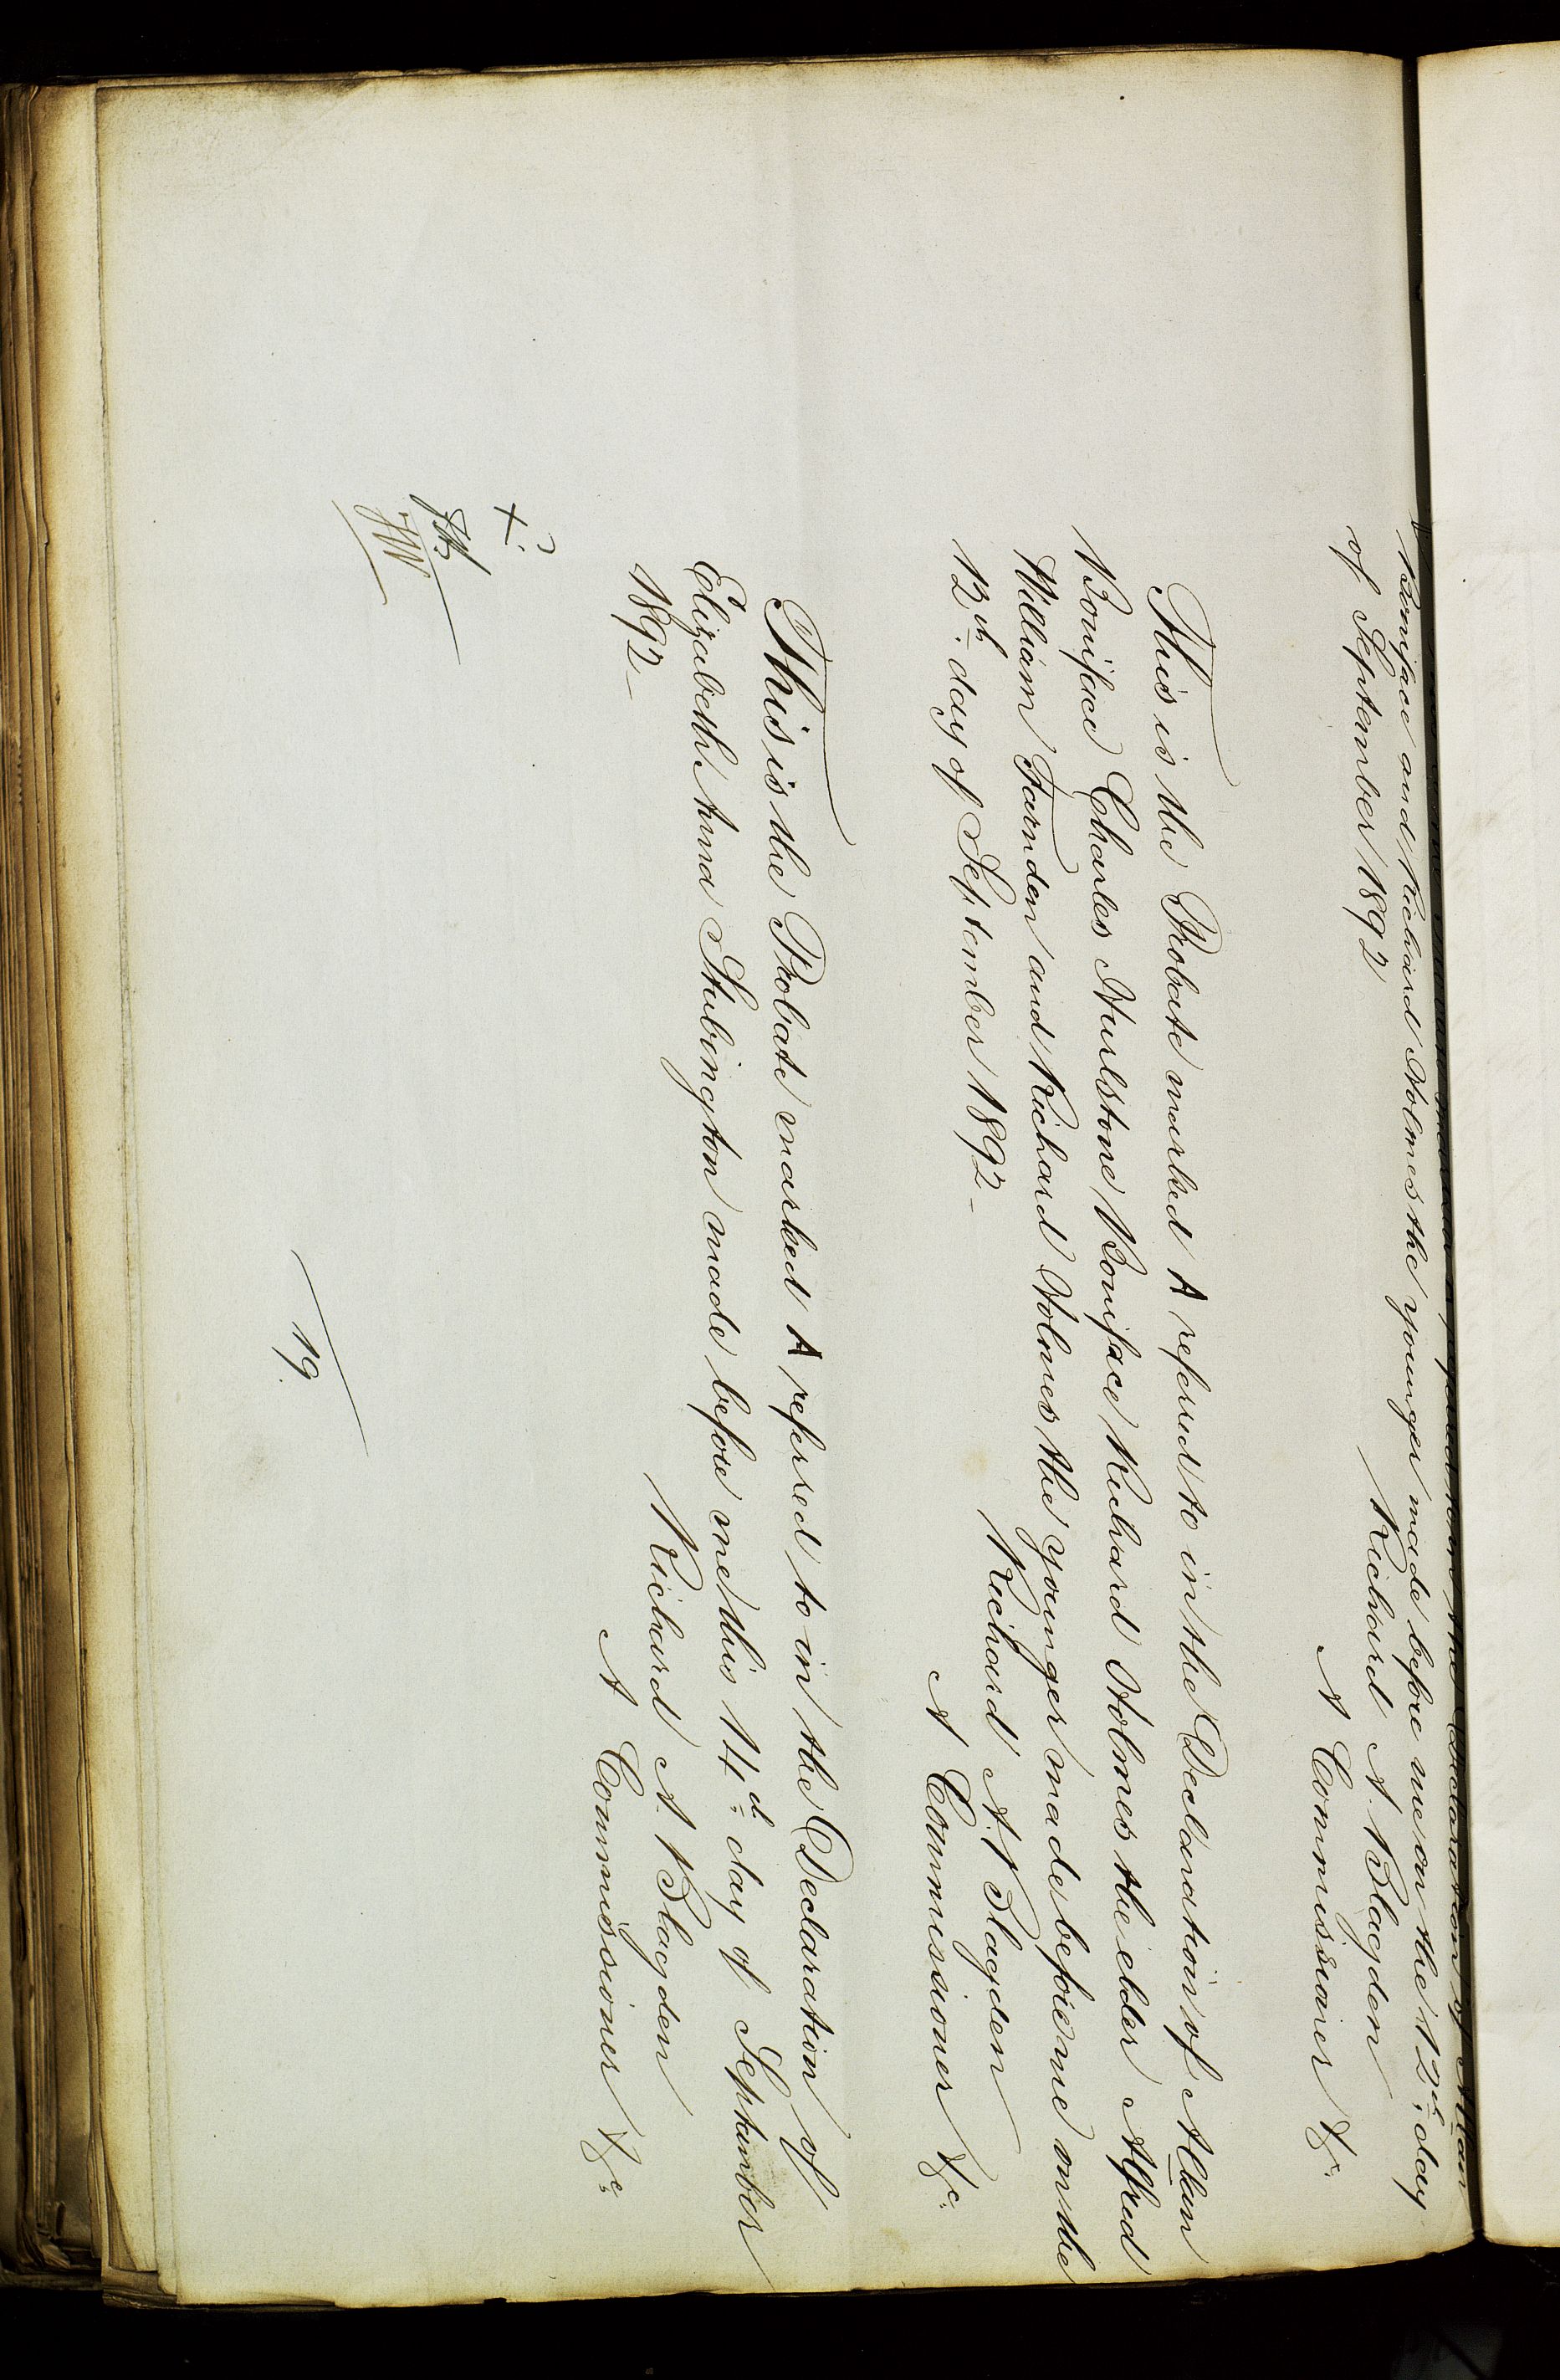 referred to in the Declaration of Allan
Boniface and Richard Holmes the younger made before me on the 12th: day
of September 1892
Richard A. Blagden
A Commissioner &c.
This is the Probate marked A referred to in the Declaration of Allan
Boniface Charles Hurlstone Boniface Richard Holmes the elder Alfred
William Farnden and Richard Holmes the younger made before me on the
12th: day of September 1892 –
Richard A. Blagden
A Commissioner &c.
This is the Probate marked A referred to in the Declaration of
Elizabeth Anna Stubington made before me this 14th day of September
1892 –
Richard A. Blagden
A Commissioner &c.
X
JW
19.